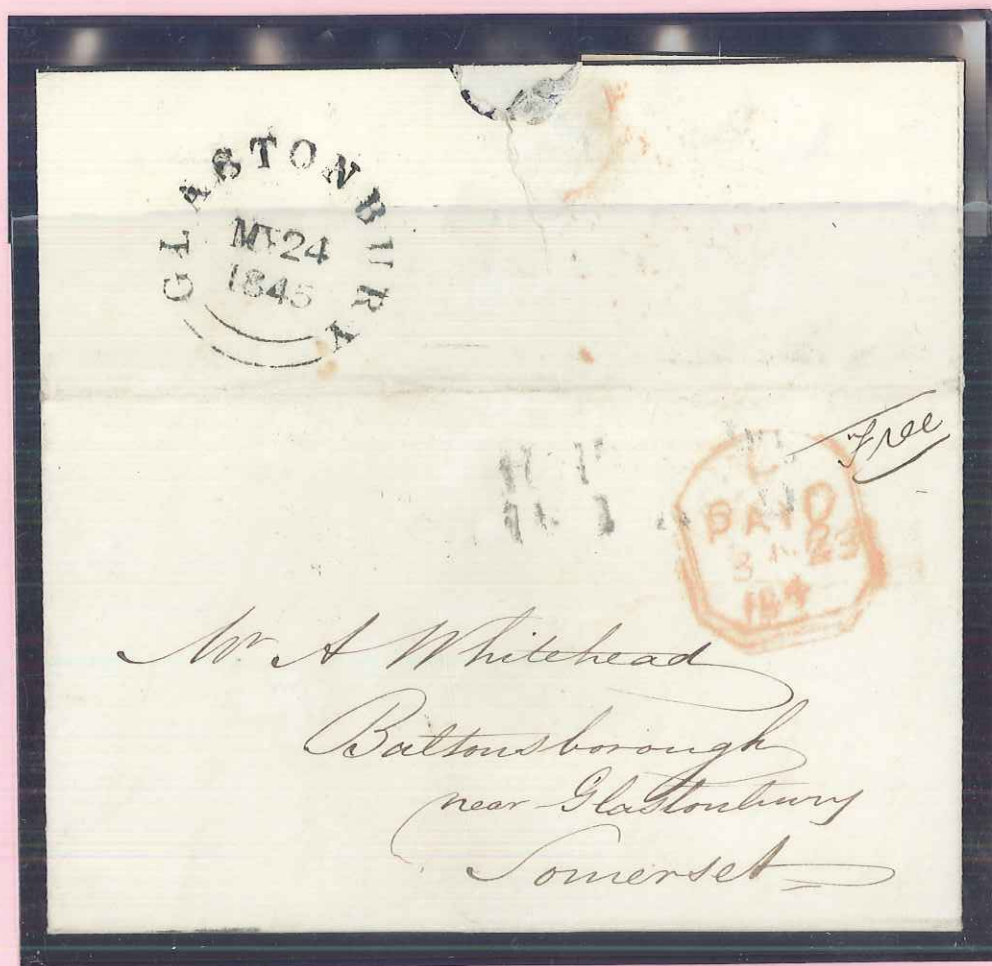 GLASTONBURY
MY 24
1845
Free
PAID
23
184
Mr. A Whitehead
Baltonsborough
near Glastonbury
Somerset